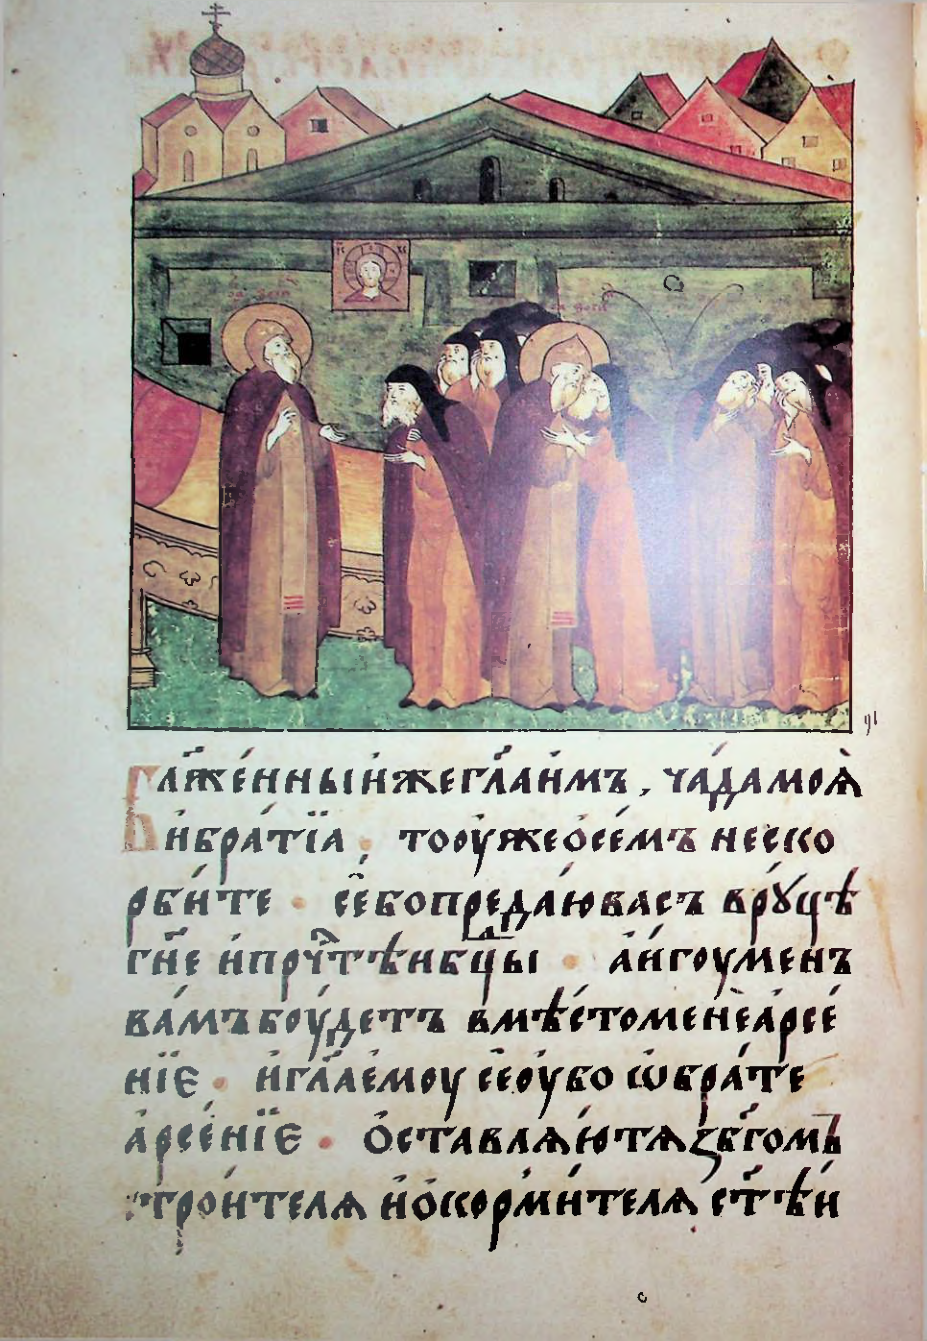 бл҃же́нныи́ же гл҃а и҆́мъ , ча́да моѧ̀
и҆ бра́тїа · то оу҆́же ѡ҆ се́мъ не ско
рби́те · се́ бо предаю̀ ва́съ в рꙋ́цѣ
гн҃е и҆ прч҃тѣи бц҃ы · а҆ и҆гоу́менъ
ва́мъ боу́детъ вмѣ́сто менѐ а҆рсе́
нїе · и҆ гл҃а е҆моу̀ се́ оу҆бо ѡ҆ бра́те
а҆рсе́нїе · ѻ҆ставлѧ́ю тѧ з бг҃омъ
строи́телѧ и҆ ѻ҆корми́телѧ ст҃ѣи